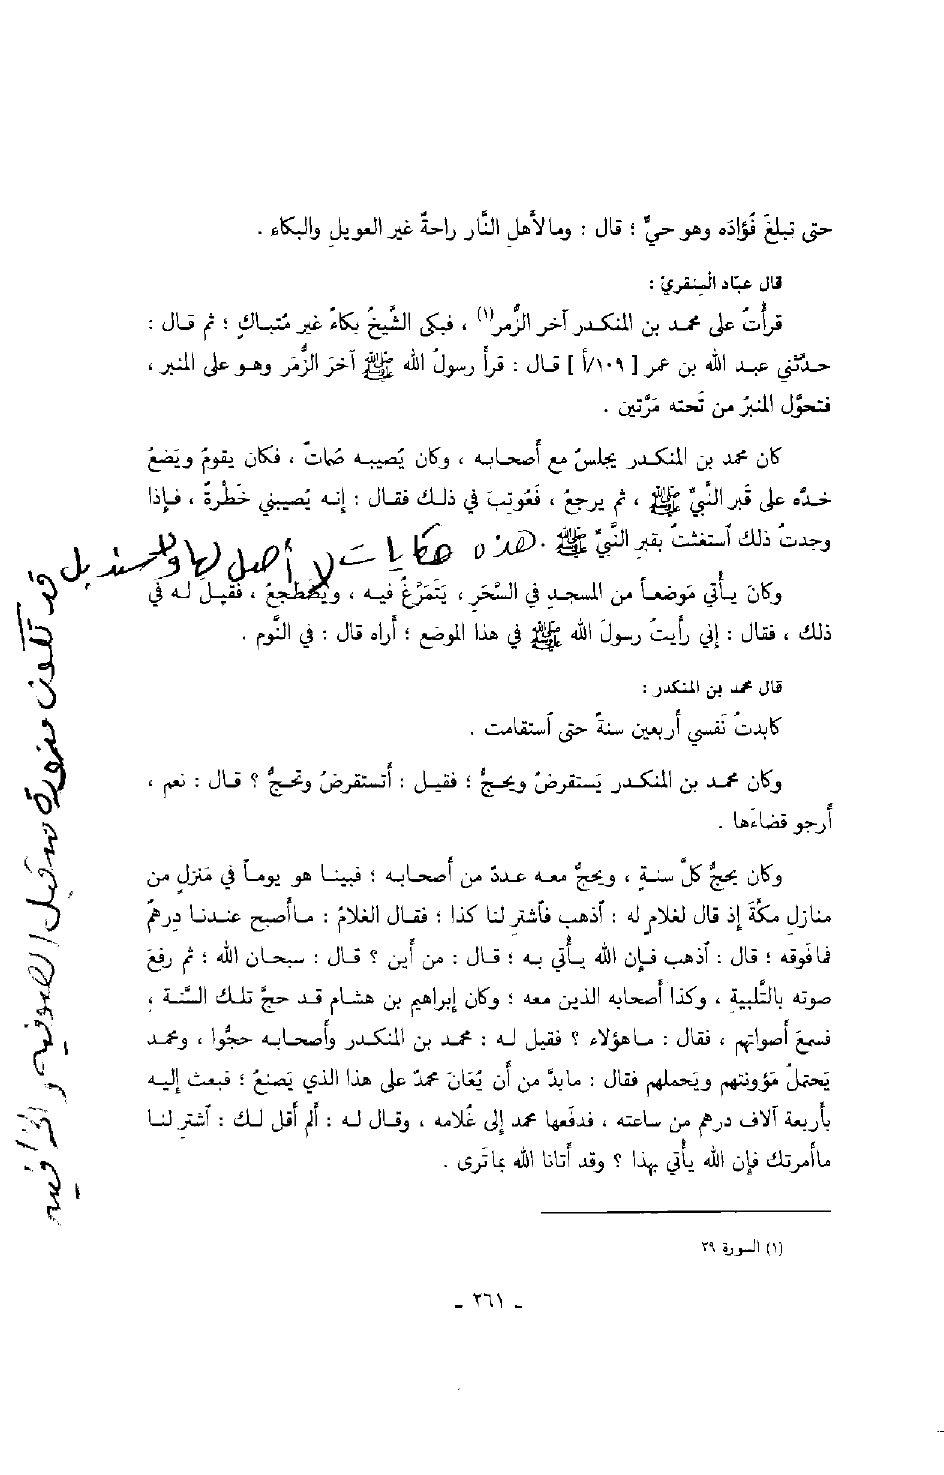 حتى تبلغَ فُؤادَه وهو حيٌّ ؛ قال : ومالأهلِ النَّار راحةٌ غير العويلِ والبكاء .
قال عبّاد المِنقريّ :
قرأتُ على محمد بن المنكدر آخر الزُّمر(١) ، فبكى الشَّيخُ بكاءً غير مُتباكٍ ؛ ثم قال :
حدّثني عبد الله بن عمر [ ١٠٩/أ ] قال : قرأ رسولُ الله ﷺ آخرَ الزُّمَر وهو على المنبر ،
فتحوَّل المنبرُ من تَحته مَرَّتين .
كان محمد بن المنكدر يجلسُ مع أصحابه ، وكان يُصيبه صُماتٌ ، فكان يقومُ ويَضعُ
خدَّه على قَبر النَّبيِّ ﷺ ، ثم يرجعُ ، فَعُوتِبَ في ذلك فقال : إنه يُصيبني خَطْرةٌ ، فإذا
وجدتُ ذلك ٱستغثتُ بقبر النَّبيِّ ﷺ . هذه حكايات لا أصل لها ولا سند بل
وكانَ يأتي مَوضعاً من المسجد في السَّحَرِ ، يَتَمَرَّغُ فيه ، ويَضْطجعُ ، فقيل له في
ذلك ، فقال : إني رأيتُ رسولَ الله ﷺ في هذا الموضع ؛ أراه قال : في النَّوم .
قال محمد بن المنكدر :
كابدتُ نَفسي أربعين سنةً حتى ٱستقامت .
وكان محمد بن المنكدر يَستقرضُ ويحجُّ ؛ فقيل : أتستقرضُ وتحجُّ ؟ قال : نعم ،
أرجو قضاءَها .
وكان يحجُّ كلَّ سنةٍ ، ويحجُّ معه عددٌ من أصحابه ؛ فبينا هو يوماً في مَنزلٍ من
منازلِ مكّةَ إذ قال لغلامٍ له : ٱذهب فٱشترِ لنا كذا ؛ فقال الغلامُ : ماأصبح عندنا دِرهمٌ
فما فوقه ؛ قال : ٱذهب فإن الله يأتي به ؛ قال : من أين ؟ قال : سبحان الله ؛ ثم رفعَ
صوته بالتَّلبيةِ ، وكذا أصحابه الذين معه ؛ وكان إبراهيم بن هشام قد حجَّ تلك السَّنة ،
فسمعَ أصواتهم ، فقال : ماهؤلاء ؟ فقيل له : محمد بن المنكدر وأصحابه حجُّوا ، ومحمد
يَحتملُ مؤونتهم ويَحملهم فقال : مابدَّ من أن يُعَانَ محمدٌ على هذا الذي يَصنعُ ؛ فبعث إليه
بأربعة آلاف درهم من ساعته ، فدفَعها محمد إلى غُلامه ، وقال له : ألم أقل لك : ٱشترِ لنا
ماأمرتك فإن الله يأتي بهذا ؟ وقد أتانا الله بما تَرى .
(١) السورة ٣٩
- ٢٦١ -
قد تكون مزورة من قبل الصوفية والرافضية